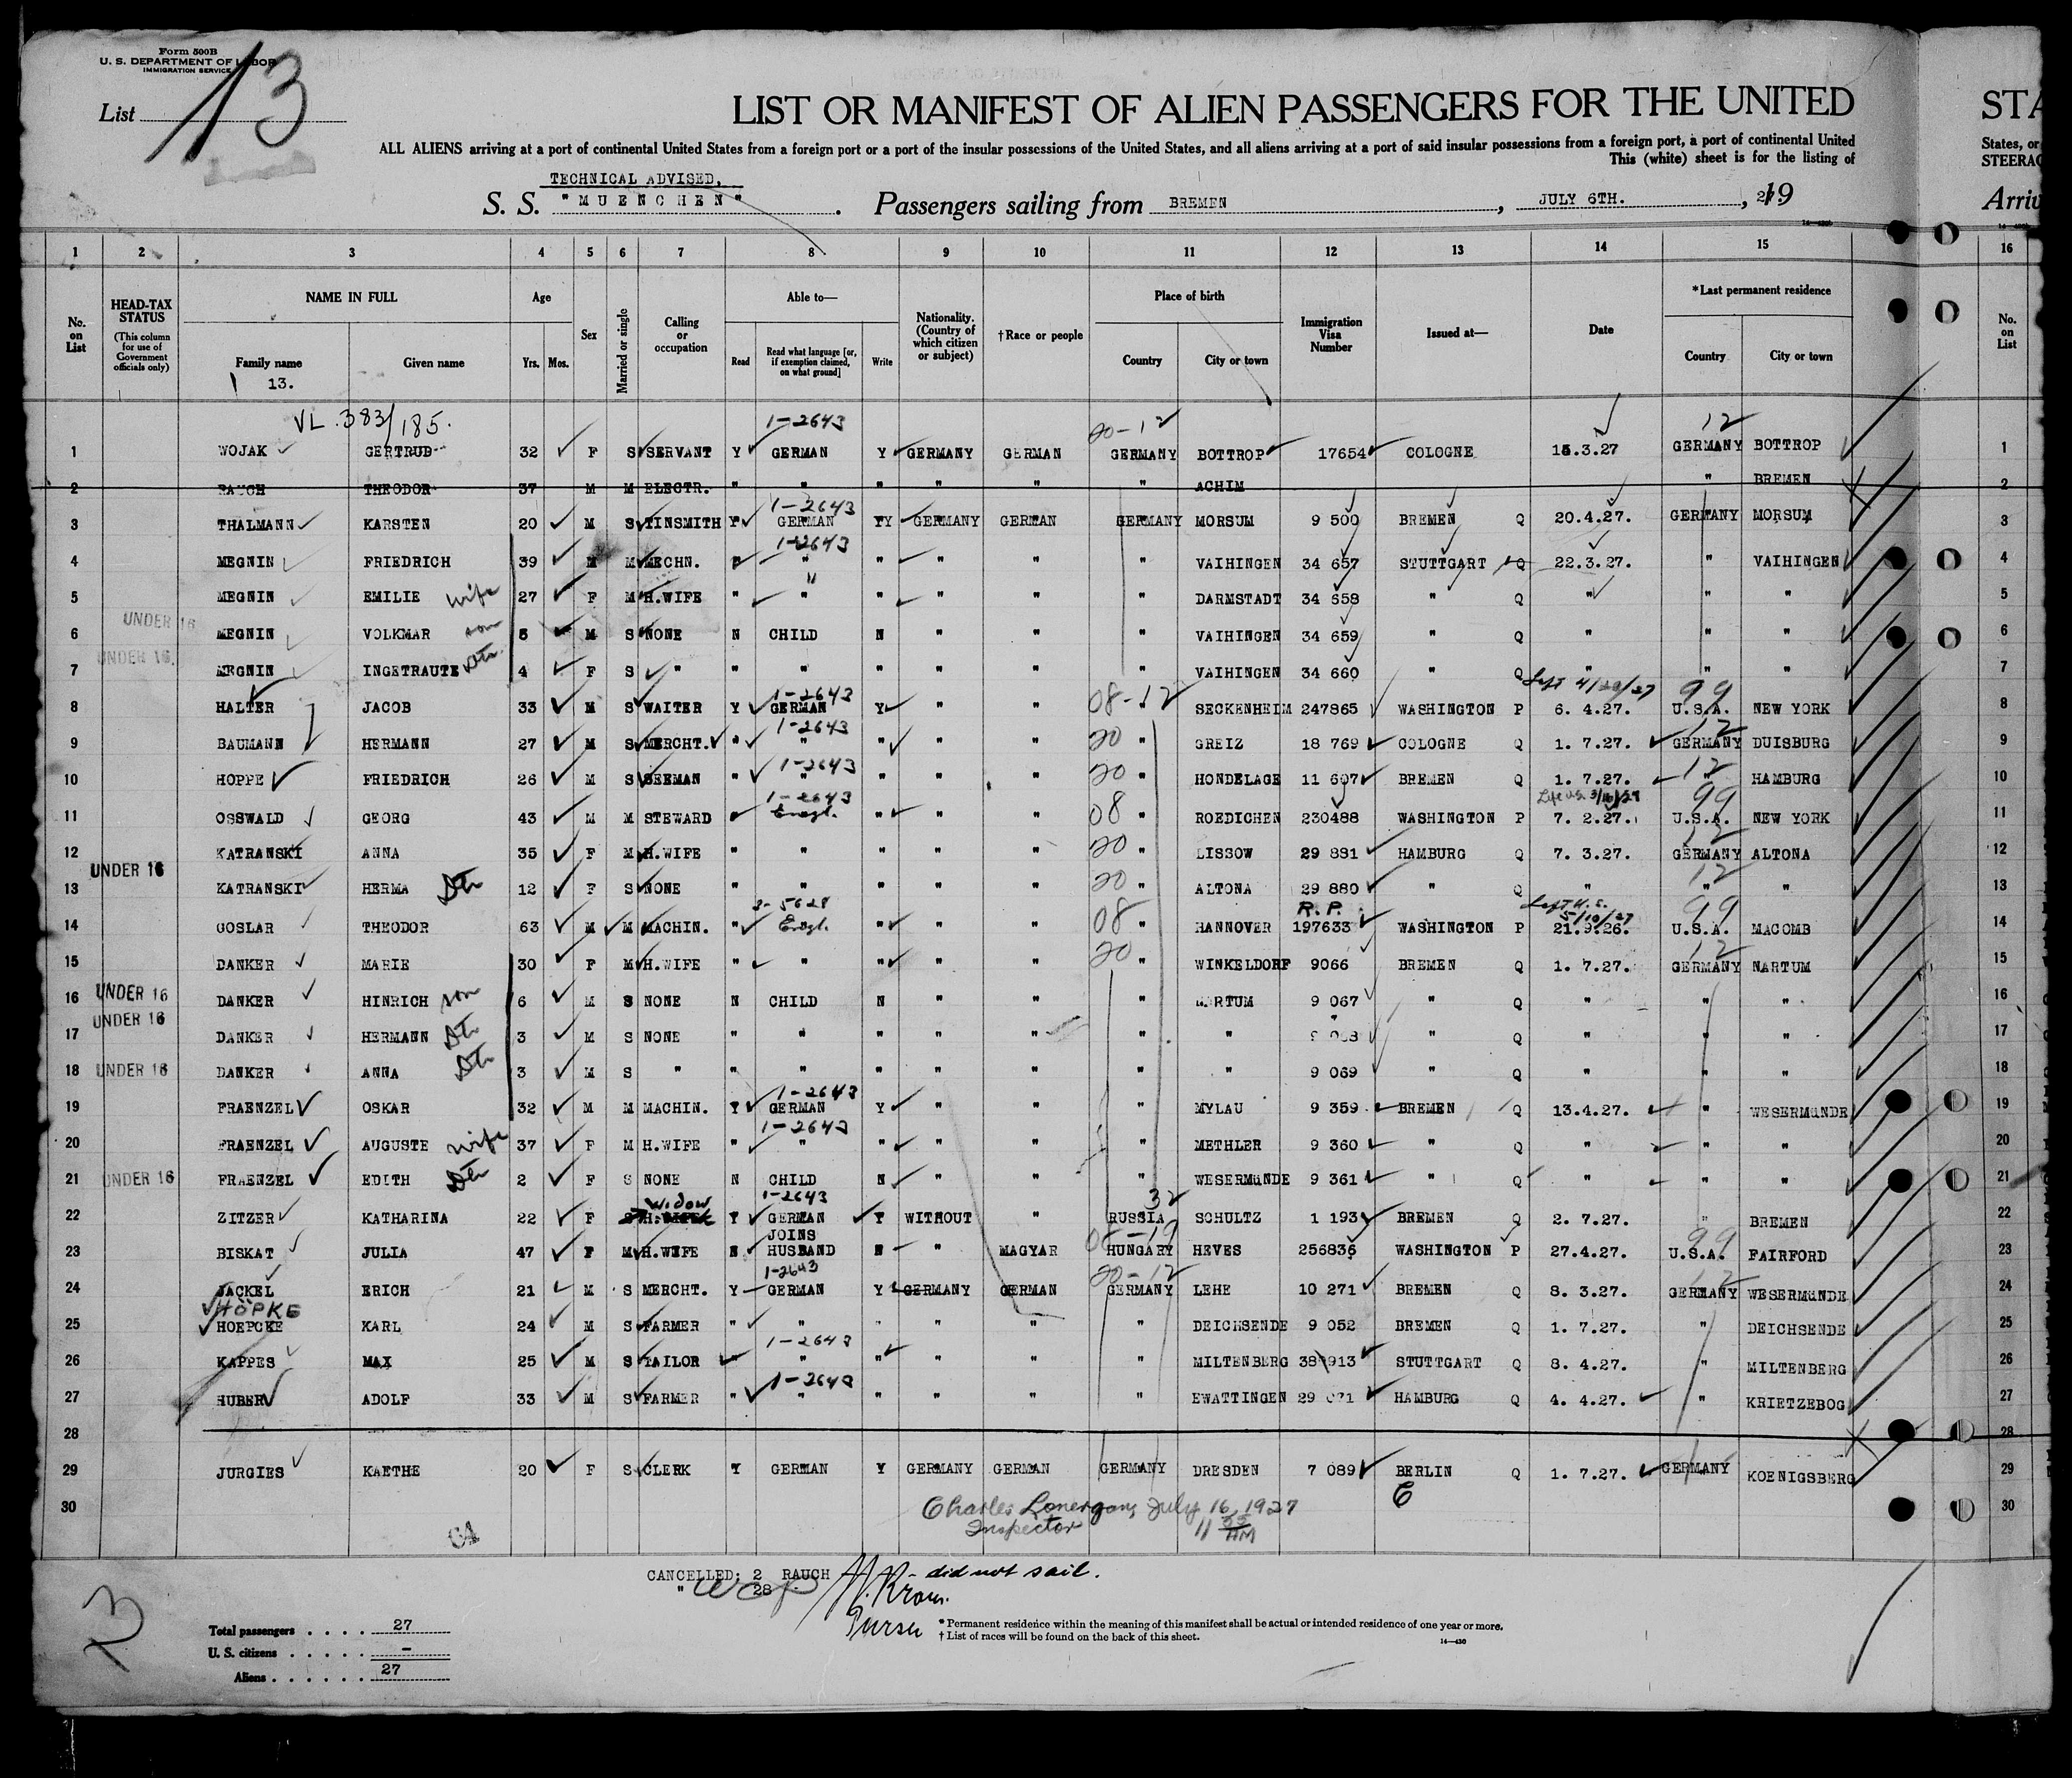 Form 500B
U. S. DEPARTMENT OF LABOR
IMMIGRATION SERVICE
List 13
LIST OR MANIFEST OF ALIEN PASSENGERS FOR THE UNITED STA
ALL ALIENS arriving at a port of continental United States from a foreign port or a port of the insular possessions of the United States, and all aliens arriving at a port of said insular possessions from a foreign port, a port of continental United States, or
This (white) sheet is for the listing of STEERAG
TECHNICAL ADVISED.
S. S. "MUENCHEN". Passengers sailing from BREMEN, JULY 6TH., 19 Arriv
1 2 3 4 5 6 7 8 9 10 11 12 13 14 15 16
No. on List
HEAD-TAX STATUS (This column for use of Government officials only)
NAME IN FULL Family name Given name
Age Yrs. Mos.
Sex
Married or single
Calling or occupation
Able to— Read Read what language [or, if exemption claimed, on what ground] Write
Nationality. (Country of which citizen or subject)
†Race or people
Place of birth Country City or town
Immigration Visa Number
Issued at—
Date
*Last permanent residence Country City or town
No. on List
13.
VL 383/185. 1-2643 20-12 12
1 WOJAK GERTRUD 32 F S SERVANT Y GERMAN Y GERMANY GERMAN GERMANY BOTTROP 17654 COLOGNE 15.3.27 GERMANY BOTTROP 1
2 RAUCH THEODOR 37 M M ELECTR. " " " " " " ACHIM " BREMEN 2
1-2643
3 THALMANN KARSTEN 20 M S TINSMITH Y GERMAN YY GERMANY GERMAN GERMANY MORSUM 9 500 BREMEN Q 20.4.27. GERMANY MORSUM 3
1-2643
4 MEGNIN FRIEDRICH 39 M M MECHN. " " " " " " VAIHINGEN 34 657 STUTTGART Q 22.3.27. " VAIHINGEN 4
5 MEGNIN EMILIE wife 27 F M H.WIFE " " " " " " DARMSTADT 34 658 " Q " " " 5
UNDER 16
6 MEGNIN VOLKMAR son 5 M S NONE N CHILD N " " " VAIHINGEN 34 659 " Q " " " 6
UNDER 16.
7 MEGNIN INGETRAUTE Dtr. 4 F S " " " " " " " VAIHINGEN 34 660 " Q " " " 7
1-2643 08-12 Left 4/20/27 99
8 HALTER JACOB 33 M S WAITER Y GERMAN Y " " " SECKENHEIM 247865 WASHINGTON P 6. 4.27. U.S.A. NEW YORK 8
1-2643 20 12
9 BAUMANN HERMANN 27 M S MERCHT. " " " " " " GREIZ 18 769 COLOGNE Q 1. 7.27. GERMANY DUISBURG 9
1-2643 20 12
10 HOPPE FRIEDRICH 26 M S SEEMAN " " " " " " HONDELAGE 11 697 BREMEN Q 1. 7.27. " HAMBURG 10
1-2643 08 99
11 OSSWALD GEORG 43 M M STEWARD Engl. " " " " ROEDICHEN 230488 WASHINGTON P 7. 2.27. U.S.A. NEW YORK 11
20 12
12 KATRANSKI ANNA 35 F M H.WIFE " " " " " " LISSOW 29 881 HAMBURG Q 7. 3.27. GERMANY ALTONA 12
UNDER 16 20 12
13 KATRANSKI HERMA Dtr 12 F S NONE " " " " " " ALTONA 29 880 " Q " " " 13
3-5628 08 R.P. Left U.S. 5/10/27 99
14 GOSLAR THEODOR 63 M M MACHIN. " Engl. " " " " HANNOVER 197633 WASHINGTON P 21.9.26. U.S.A. MACOMB 14
20 12
15 DANKER MARIE 30 F M H.WIFE " " " " " " WINKELDORF 9066 BREMEN Q 1. 7.27. GERMANY NARTUM 15
16 UNDER 16 DANKER HINRICH son 6 M S NONE N CHILD N " " " NARTUM 9 067 " Q " " " 16
UNDER 16
17 DANKER HERMANN Dtr 3 M S NONE " " " " " " " " Q " " " 17
18 UNDER 16 DANKER ANNA Dtr 3 M S " " " " " " " " 9 069 " Q " " " 18
1-2643
19 FRAENZEL OSKAR 32 M M MACHIN. Y GERMAN Y " " " MYLAU 9 359 BREMEN Q 13.4.27. " WESERMüNDE 19
1-2643
20 FRAENZEL AUGUSTE wife 37 F M H.WIFE " " " " " " METHLER 9 360 " Q " " " 20
21 UNDER 16 FRAENZEL EDITH Dtr 2 F S NONE N CHILD N " " " WESERMüNDE 9 361 " Q " " " 21
widow 1-2643 32
22 ZITZER KATHARINA 22 F S H.WIFE Y GERMAN Y WITHOUT " RUSSIA SCHULTZ 1 193 BREMEN Q 2. 7.27. " BREMEN 22
JOINS 08-19 99
23 BISKAT JULIA 47 F M H.WIFE N HUSBAND N " MAGYAR HUNGARY HEVES 256836 WASHINGTON P 27.4.27. U.S.A. FAIRFORD 23
1-2643 20-12 12
24 JACKEL ERICH 21 M S MERCHT. Y GERMAN Y GERMANY GERMAN GERMANY LEHE 10 271 BREMEN Q 8. 3.27. GERMANY WESERMüNDE 24
HÖPKE
25 HOEPCKE KARL 24 M S FARMER " " " " " " DEICHSENDE 9 052 BREMEN Q 1. 7.27. " DEICHSENDE 25
1-2643
26 KAPPES MAX 25 M S TAILOR " " " " " " MILTENBERG 38 913 STUTTGART Q 8. 4.27. " MILTENBERG 26
1-2643
27 HUBER ADOLF 33 M S FARMER " " " " " " EWATTINGEN 29 071 HAMBURG Q 4. 4.27. " KRIETZEBOG 27
28 28
29 JURGIES KAETHE 20 F S CLERK Y GERMAN Y GERMANY GERMAN GERMANY DRESDEN 7 089 BERLIN Q 1. 7.27. GERMANY KOENIGSBERG 29
30 Charles Lonergan, July 16, 1927 30
Inspector 11 55 AM
CANCELLED: 2 RAUCH - did not sail.
" 28
Purser
13
Total passengers . . . . 27
U. S. citizens . . . . . –
Aliens . . . . . . 27
* Permanent residence within the meaning of this manifest shall be actual or intended residence of one year or more.
† List of races will be found on the back of this sheet.
14—430